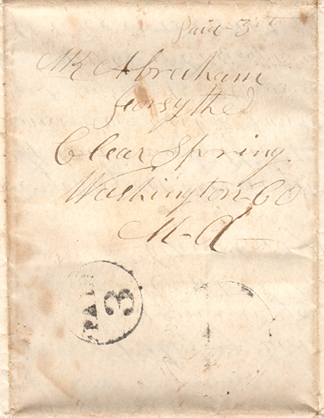 Paid 3
Mr Abraham
Forsythe
Clear Spring
Washington Co
M.d
PAID
3